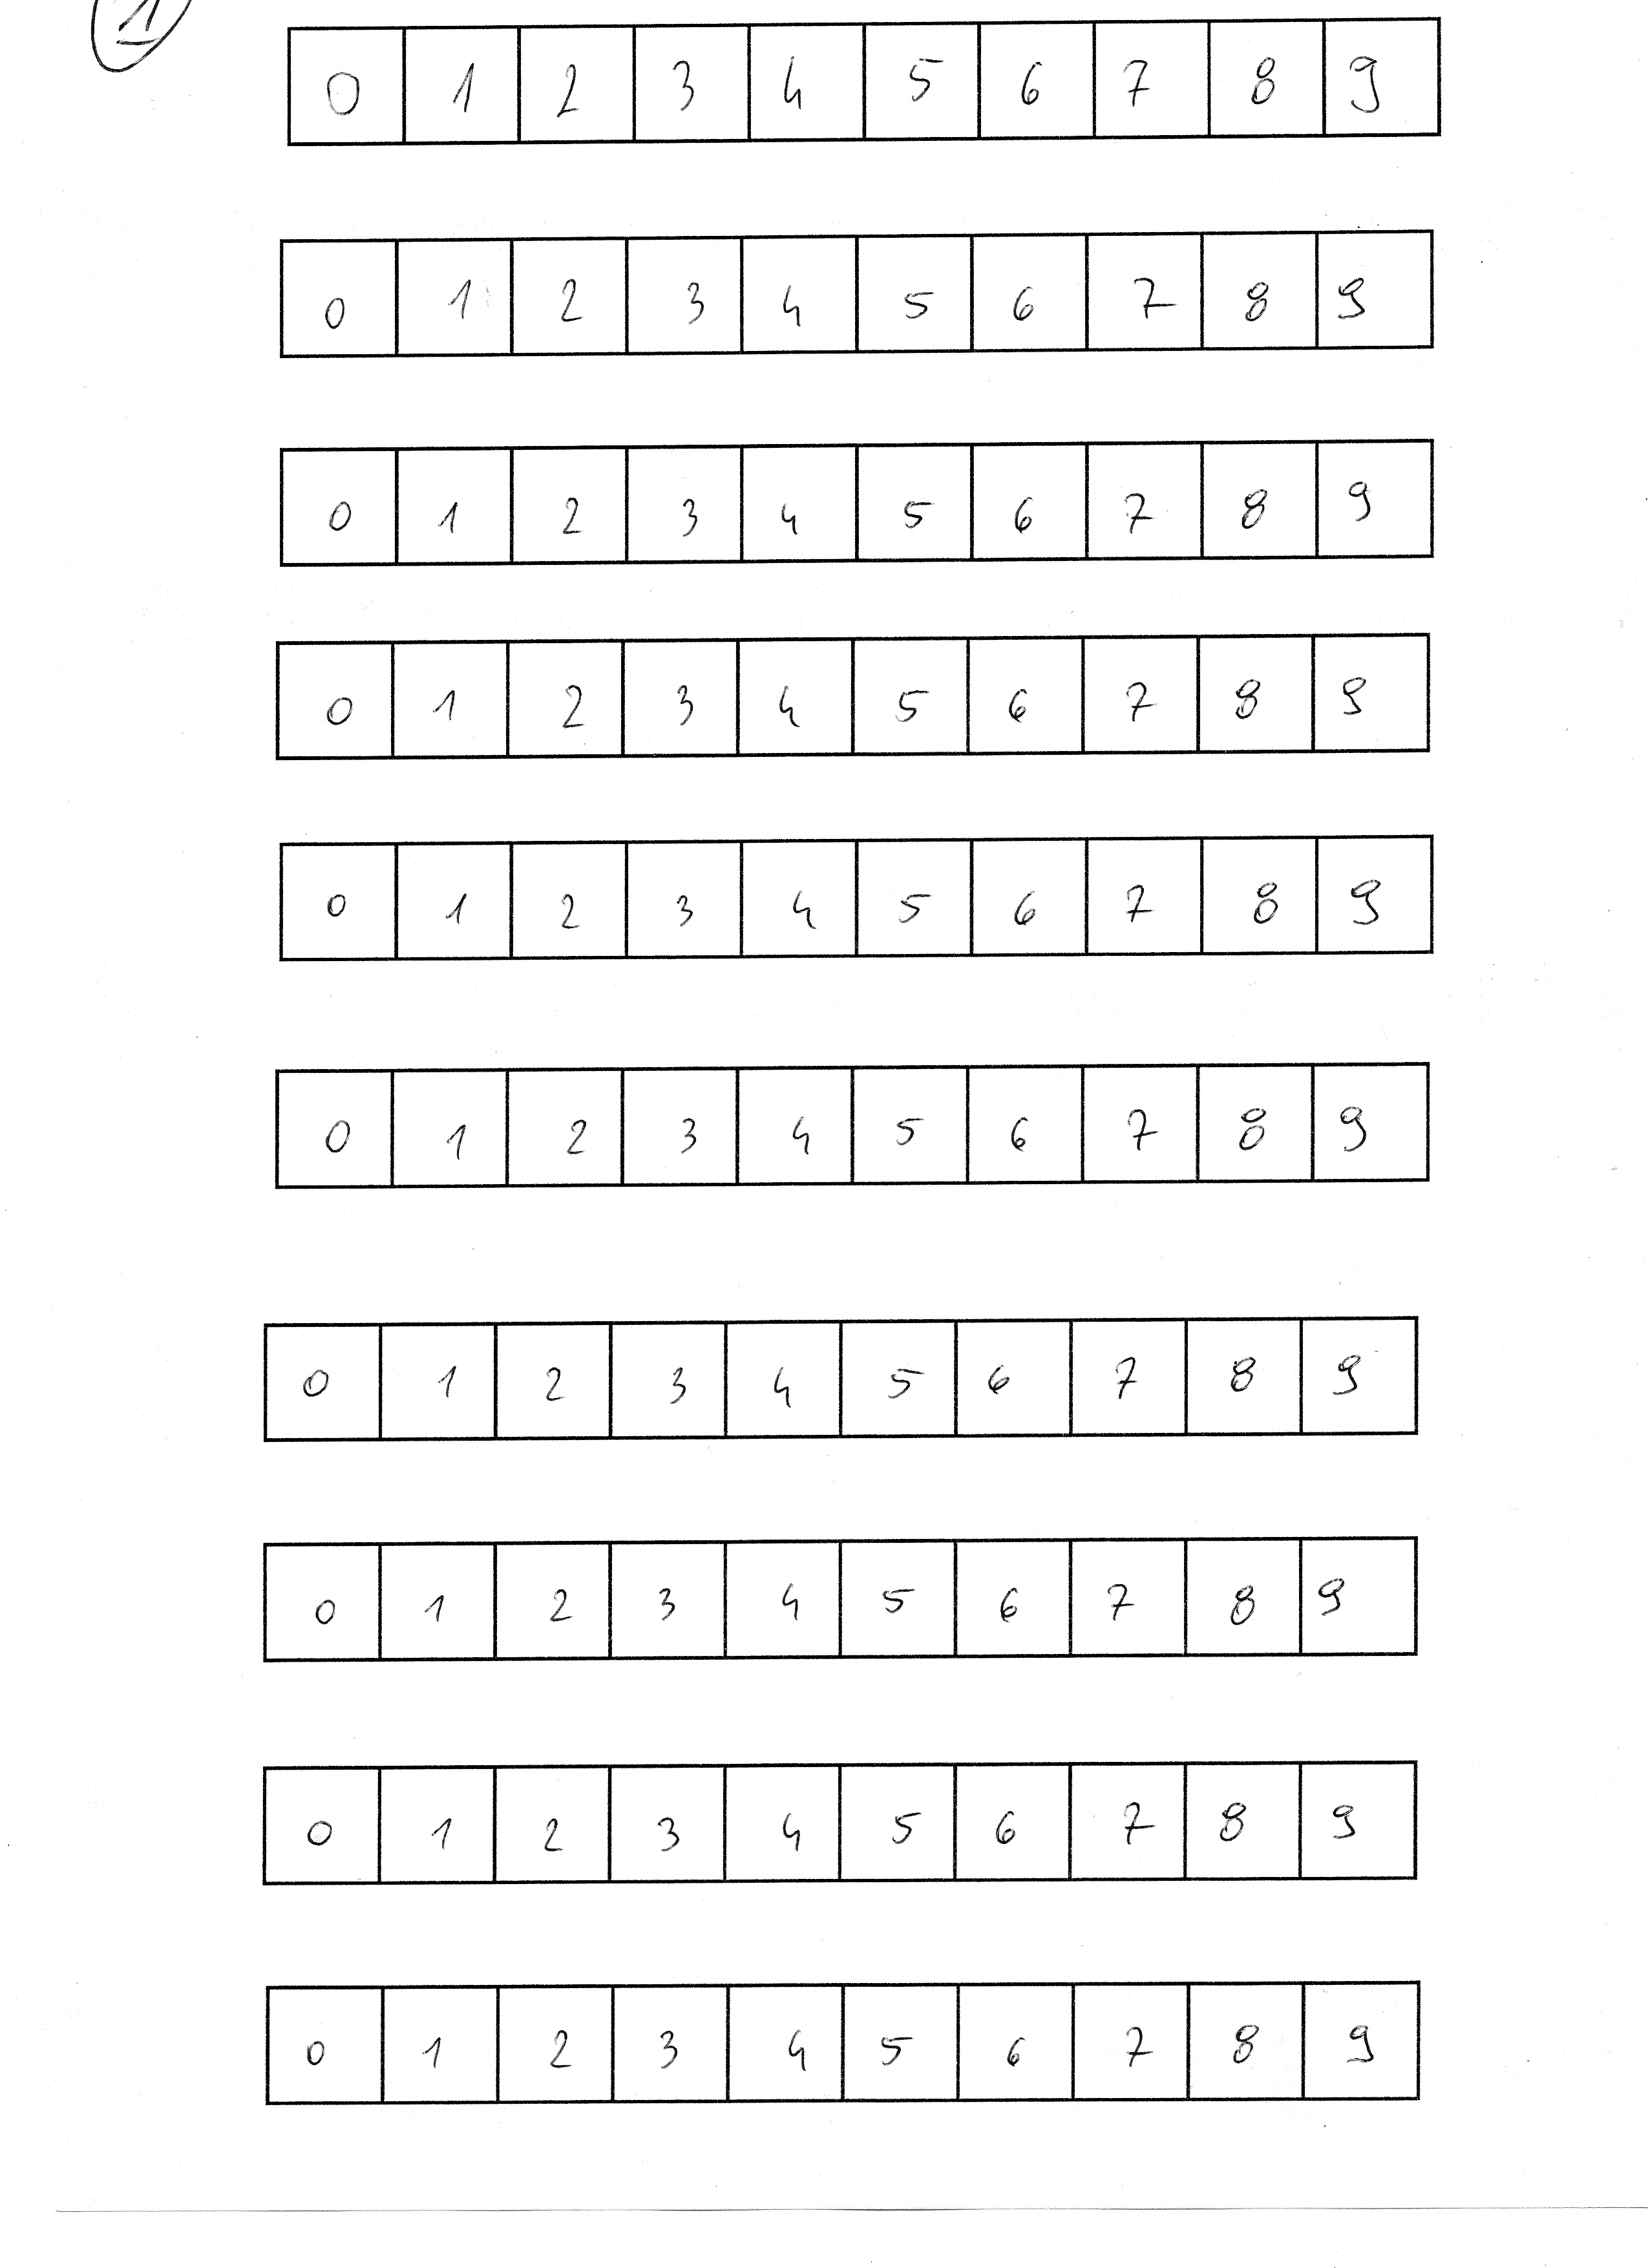 1
0 1 2 3 4 5 6 7 8 9
0 1 2 3 4 5 6 7 8 9
0 1 2 3 4 5 6 7 8 9
0 1 2 3 4 5 6 7 8 9
0 1 2 3 4 5 6 7 8 9
0 1 2 3 4 5 6 7 8 9
0 1 2 3 4 5 6 7 8 9
0 1 2 3 4 5 6 7 8 9
0 1 2 3 4 5 6 7 8 9
0 1 2 3 4 5 6 7 8 9